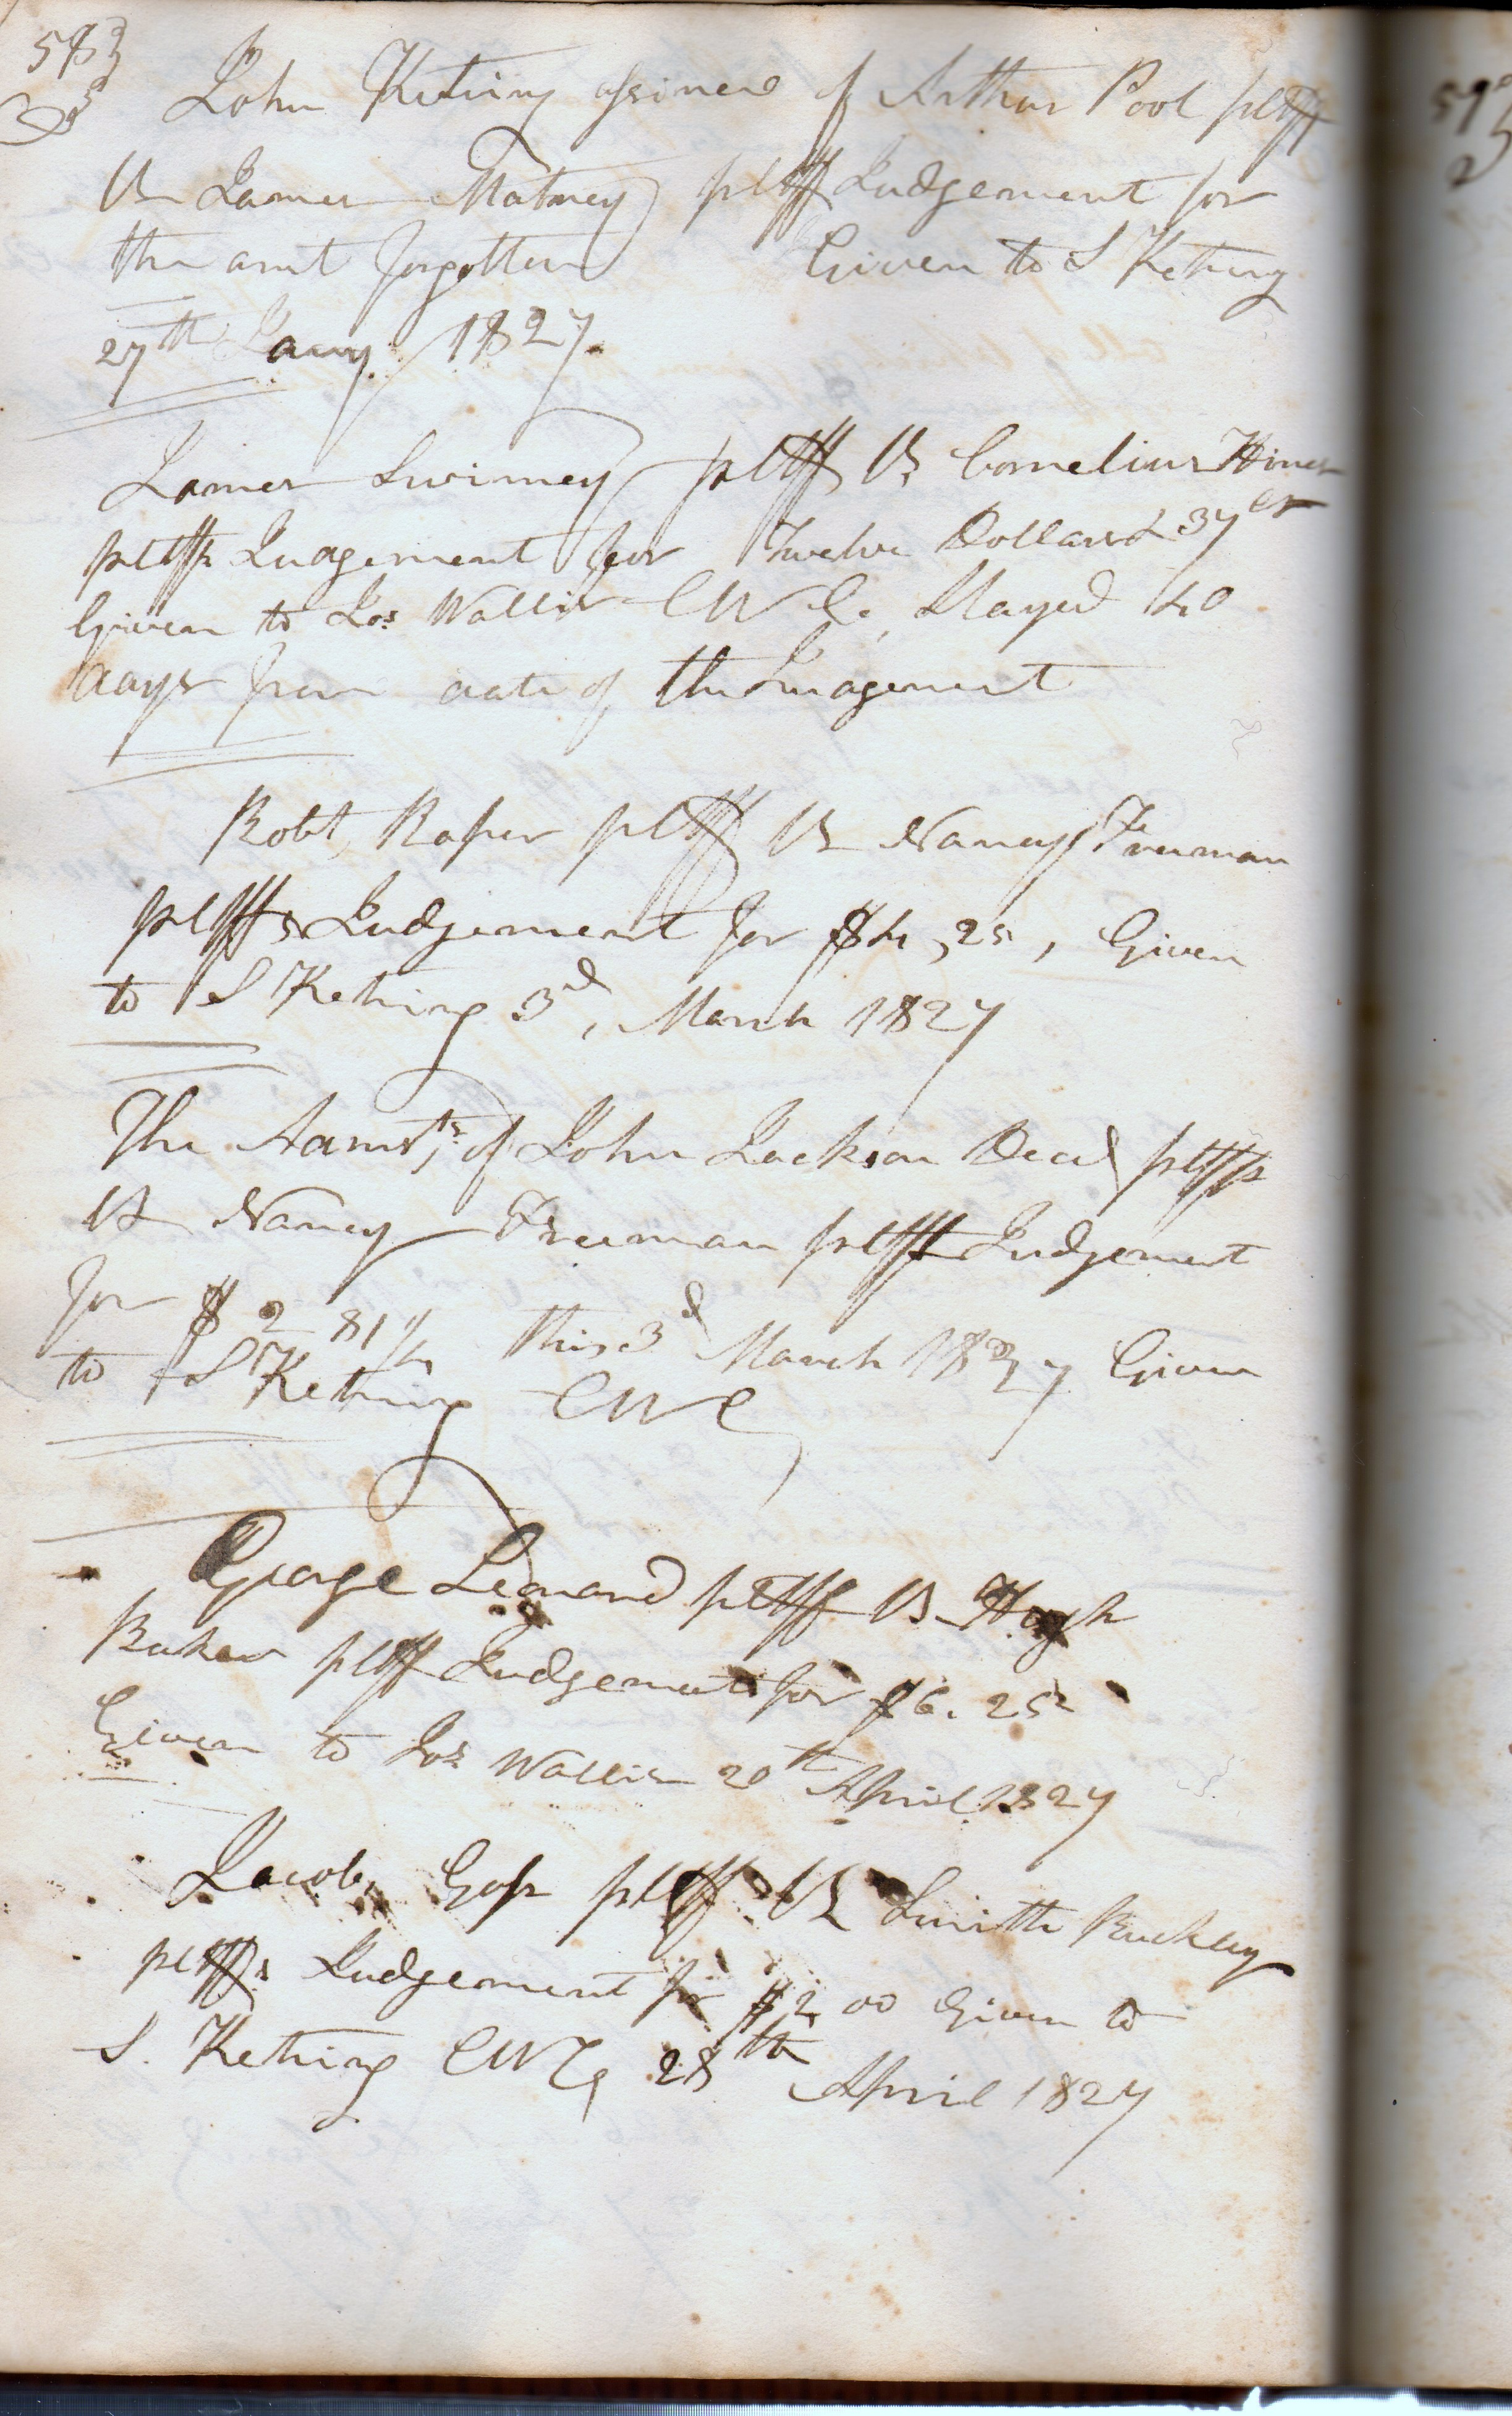 58
John Ketring assinee of Arthur Pool pltff
Vs James Matney pltff Judgement for
the amt forgotten Given to S Ketring
27th Jany. 1827.
James Swinney pltff Vs Cornelius Hines
pltffs Judgement for Twelve Dollars 37 cts
Given to Jos Wallis CWC, Stayed 40
days from date of the Judgement
Robt, Roper pltff Vs Nancy Freeman
pltffs Judgement for $4,25, Given
to S Ketring 3d, March 1827
The Admtrs, of John Jackson Decd pltffs
Vs Nancy Freeman pltffs Judgement
for $2 81 1/4 this 3d March 1827 Given
to S Ketring CWC
George Leonard pltff Vs Hugh
Baker pltff Judgement for $6.25
Given to Jos Wallis 20th April 1827
Jacob, Goss pltff Vs Smith Buckley
pltffs Judgement for $2 00 Given to
S. Ketring CWC, 28th April 1827
59
2